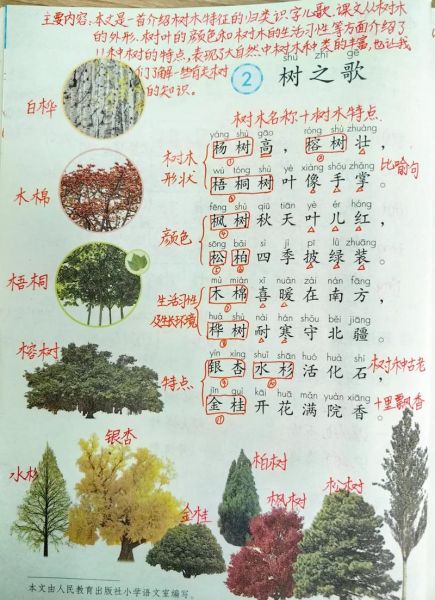 主要内容:本文是一首介绍树木特征的归类识字儿歌。课文从树木
的外形、树叶的颜色和树木的生活习性等方面介绍了
树木的特点,表现了大自然中树木种类的丰富,也让我
们了解一些有关树木
的知识。
shù zhī gē
2 树之歌
白桦
树木名称+树木特点
yáng shù gāo róng shù zhuàng
树木形状 杨树高,榕树壮,
wú tóng shù yè xiàng shǒu zhǎng
梧桐树叶像手掌。 比喻句
木棉
fēng shù qiū tiān yè ér hóng
颜色 枫树秋天叶儿红,
sōng bǎi sì jì pī lǜ zhuāng
松柏四季披绿装。
梧桐
mù mián xǐ nuǎn zài nán fāng
生活习性及生长环境 木棉喜暖在南方,
huà shù nài hán shǒu běi jiāng
桦树耐寒守北疆。
榕树
yín xìng shuǐ shān huó huà shí
特点 银杏水杉活化石, 树种古老
jīn guì kāi huā mǎn yuàn xiāng
金桂开花满院香。 十里飘香
银杏
水杉
金桂
柏树
枫树
松树
本文由人民教育出版社小学语文室编写。